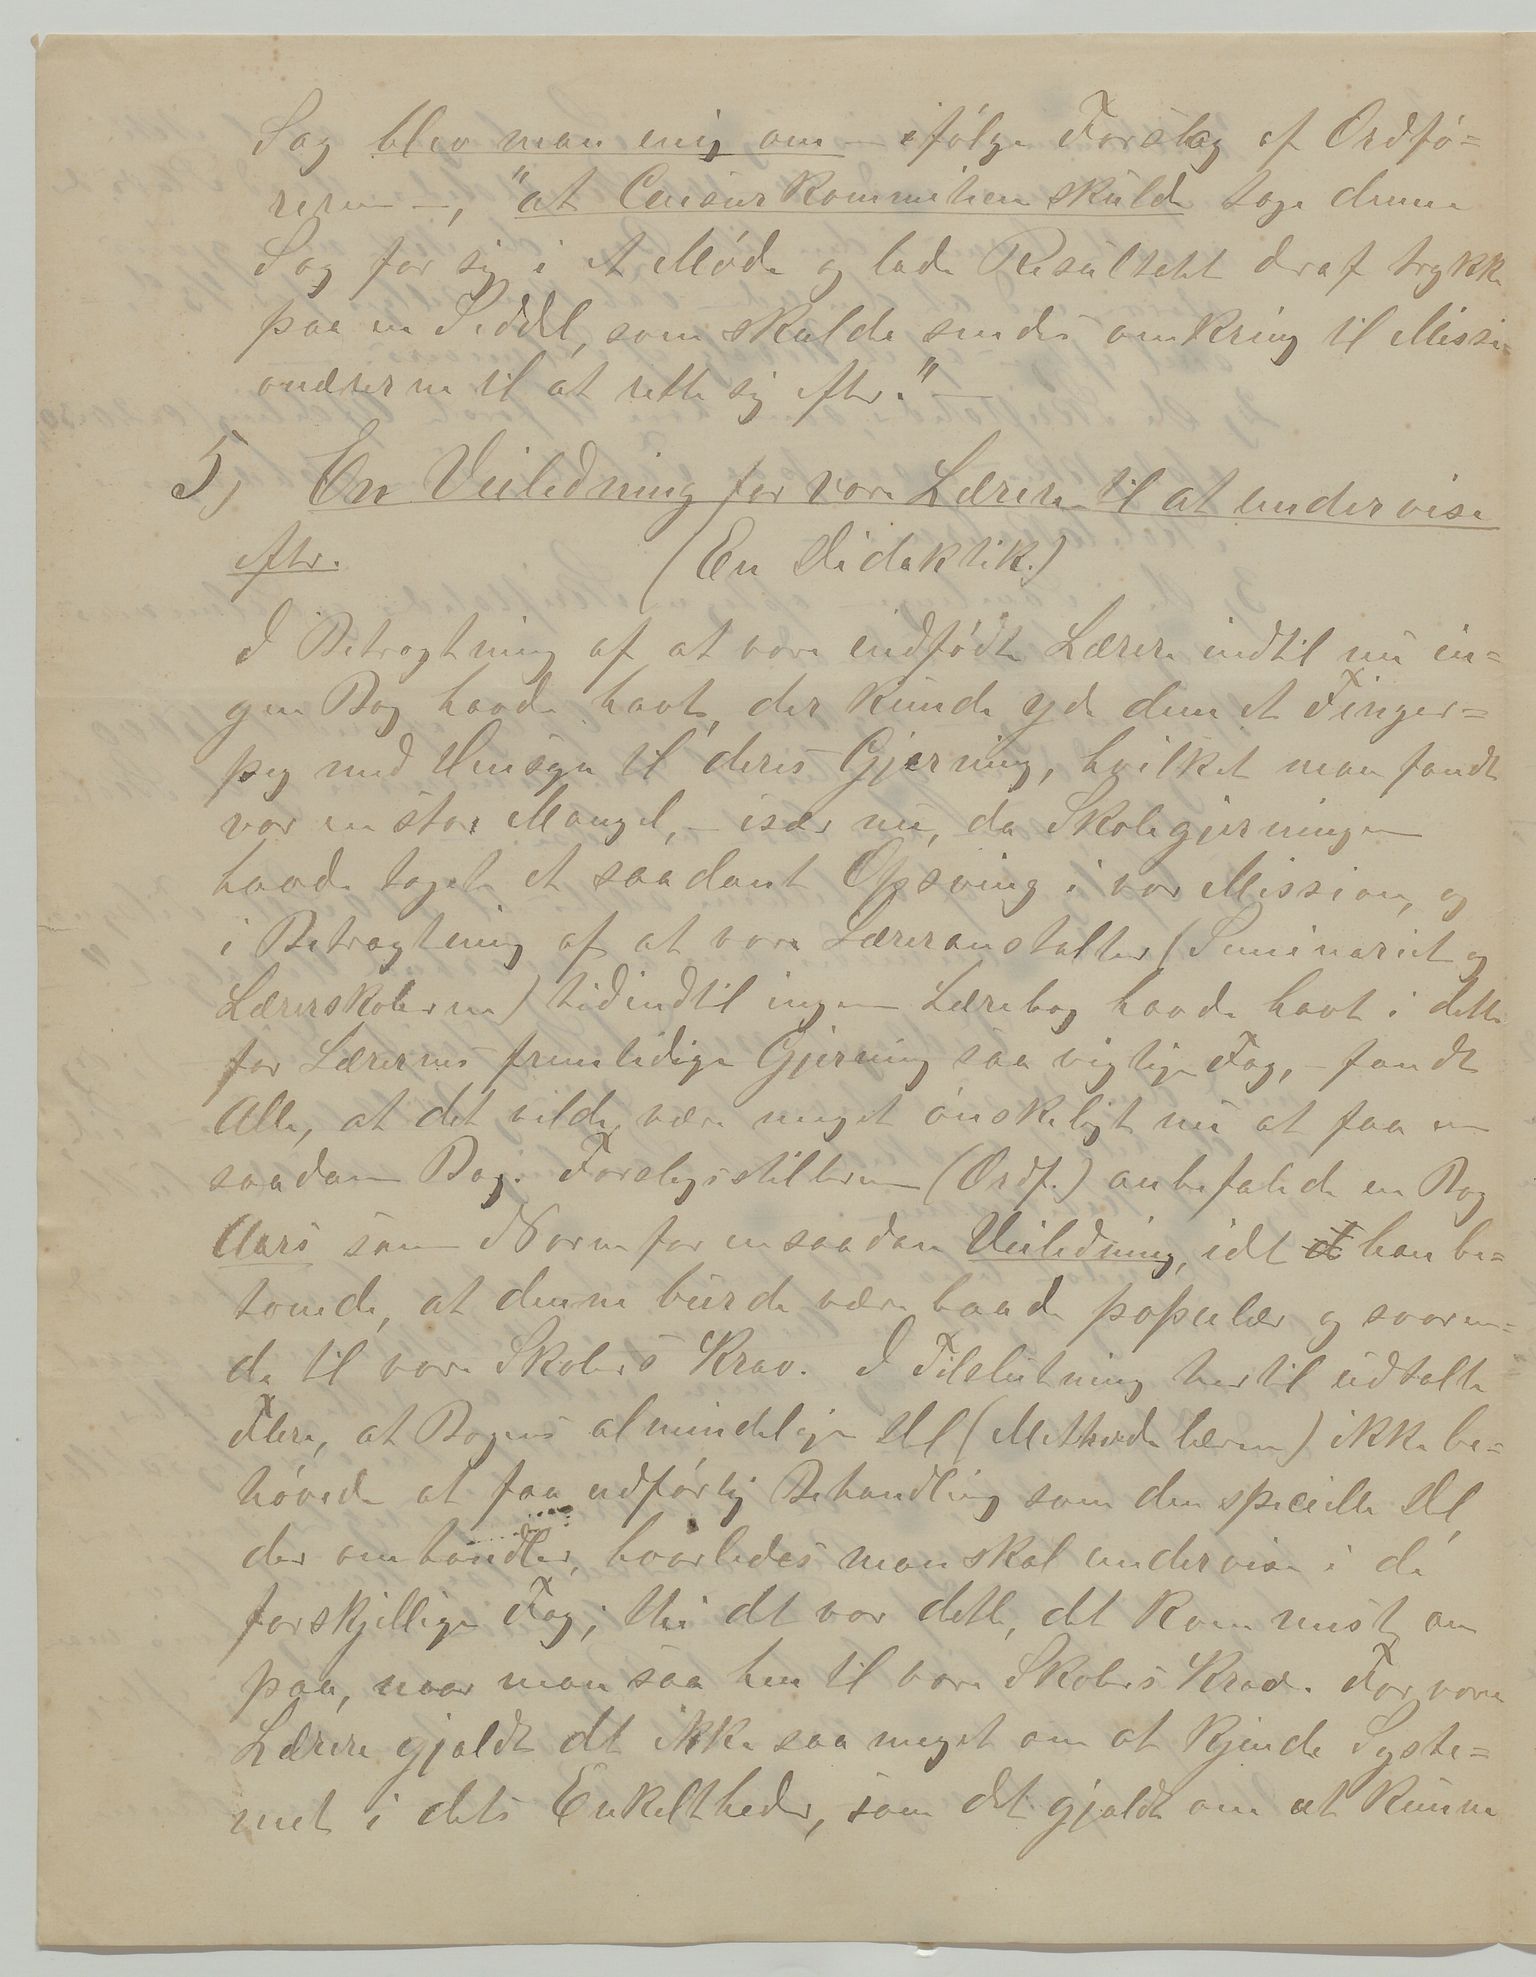 Sag blev man enig om – ifølge Forslag af Ordfø=
reren –, "at Censurkommiteen skulde tage denne
Sag for sig i et Møde og lade Resultatet deraf trykke
paa en Seddel, som skulde sendes omkring til Missi-
onærerne til at rette sig efter." –
5) En Veiledning for vore Lærere til at undervise
efter. (En Didaktik.)
I Betragtning af at vore indfødte Lærere indtil nu in=
gen Bog havde havt, der kunde yde dem et Finger=
peg med Hensyn til deres Gjerning, hvilket man fandt
var en stor Mangel, – især nu, da Skolegjerningen
havde taget et saadant Opsving i vor Mission, og
i Betragtning af at vore Læreranstalter (Seminariet og
Lærerskolerne) tidindtil ingen Lærebog havde havt i dette
for Lærernes fremtidige Gjerning saa vigtige Fag, – fandt
Alle, at det vilde være meget ønskeligt nu at faa en
saadan Bog. Forslagsstilleren (Ordf.) anbefalede en Bog
Aars som Norm for en saadan Veiledning, idet et han be=
tonede, at denne burde være baade populær og svaren=
de til vore Skolers Krav. I Tilslutning hertil udtalte
Flere, at Bogens almindelige Del (Methodelæren) ikke be=
høvede at faa udførlig Behandling som den specielle Del,
der omhandler, hvorledes man skal undervise i de
forskjellige Fag; thi det var dette, det kom mest an
paa, naar man saa hen til vore Skolers Krav. For vore
Lærere gjaldt det ikke saa meget om at kjende Syste=
met i dets Enkeltheder, som det gjaldt om at kunne